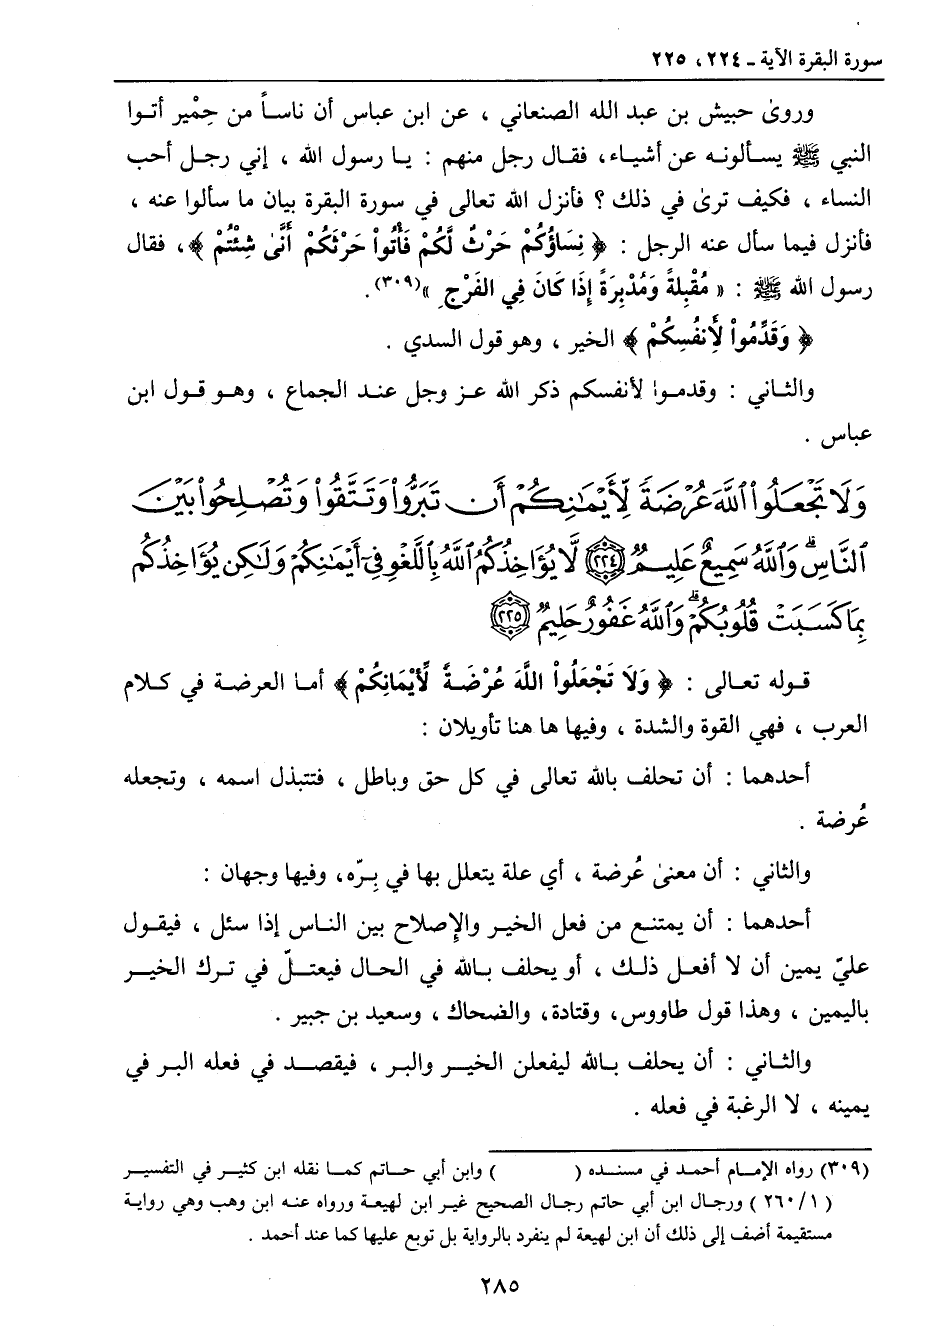 سورة البقرة الآية ـ ٢٢٤ ، ٢٢٥
وروىٰ حبيش بن عبد الله الصنعاني ، عن ابن عباس أن ناساً من حِمْير أتـوا
النبي ﷺ يسـألونـه عن أشياء، فقـال رجـل منهم : يـا رسول الله ، إني رجـل أحب
النساء ، فكيف ترىٰ في ذلك ؟ فأنزل الله تعالى في سورة البقرة بيان ما سألوا عنه ،
فأنزل فيما سأل عنه الرجل : ﴿ نِسَاؤُكُمْ حَرْثٌ لَكُمْ فَأْتُواْ حَرْثَكُمْ أَنَّىٰ شِئْتُمْ ﴾، فقال
رسول الله ﷺ : « مُقْبِلةً وَمُدْبِرَةً إذَا كَانَ فِي الفَرْجِ »(٣٠٩).
﴿ وَقَدِّمُواْ لأَِنفُسِكُمْ ﴾ الخير ، وهو قول السدي .
والثـاني : وقدمـوا لأنفسكم ذكر الله عـز وجل عنـد الجماع ، وهـو قـول ابن
عباس .
وَلَا تَجْعَلُوا۟ ٱللَّهَ عُرْضَةً لِّأَيْمَٰنِكُمْ أَن تَبَرُّوا۟ وَتَتَّقُوا۟ وَتُصْلِحُوا۟ بَيْنَ
ٱلنَّاسِ ۗ وَٱللَّهُ سَمِيعٌ عَلِيمٌ ﴿٢٢٤﴾ لَّا يُؤَاخِذُكُمُ ٱللَّهُ بِٱللَّغْوِ فِىٓ أَيْمَٰنِكُمْ وَلَٰكِن يُؤَاخِذُكُم
بِمَا كَسَبَتْ قُلُوبُكُمْ ۗ وَٱللَّهُ غَفُورٌ حَلِيمٌ ﴿٢٢٥﴾
قـولـه تعـالى : ﴿ وَلَا تَجْعَلُواْ اللَّهَ عُرْضَـةً لِّأَيْمَانِكُمْ ﴾ أمـا العرضـة في كـلام
العرب ، فهي القوة والشدة ، وفيها ها هنا تأويلان :
أحدهمـا : أن تحلف بالله تعالى في كل حق وبـاطل ، فتتبـذل اسمـه ، وتجعله
عُرضة .
والثاني : أن معنىٰ عُرضة ، أي علة يتعلل بها في بِرّه، وفيها وجهان :
أحدهمـا : أن يمتنـع من فعل الخيـر والإصلاح بين النـاس إذا سئل ، فيقـول
عليّ يمين أن لا أفعـل ذلـك ، أو يحلف بـالله في الحـال فيعتـلّ في تـرك الخيـر
باليمين ، وهذا قول طاووس، وقتادة، والضحاك ، وسعيد بن جبير .
والثـاني : أن يحلف بـالله ليفعلن الخيـر والبـر ، فيقصـد في فعله البـر في
يمينه ، لا الرغبة في فعله .
(٣٠٩) رواه الإمـام أحمـد في مسنـده (          ) وابن أبي حـاتم كمـا نقله ابن كثيـر في التفسيـر
( ٢٦٠/١ ) ورجـال ابن أبي حاتم رجـال الصحيح غيـر ابن لهيعـة ورواه عنـه ابن وهب وهي روايـة
مستقيمة أضف إلى ذلك أن ابن لهيعة لم ينفرد بالرواية بل توبع عليها كما عند أحمد .
٢٨٥